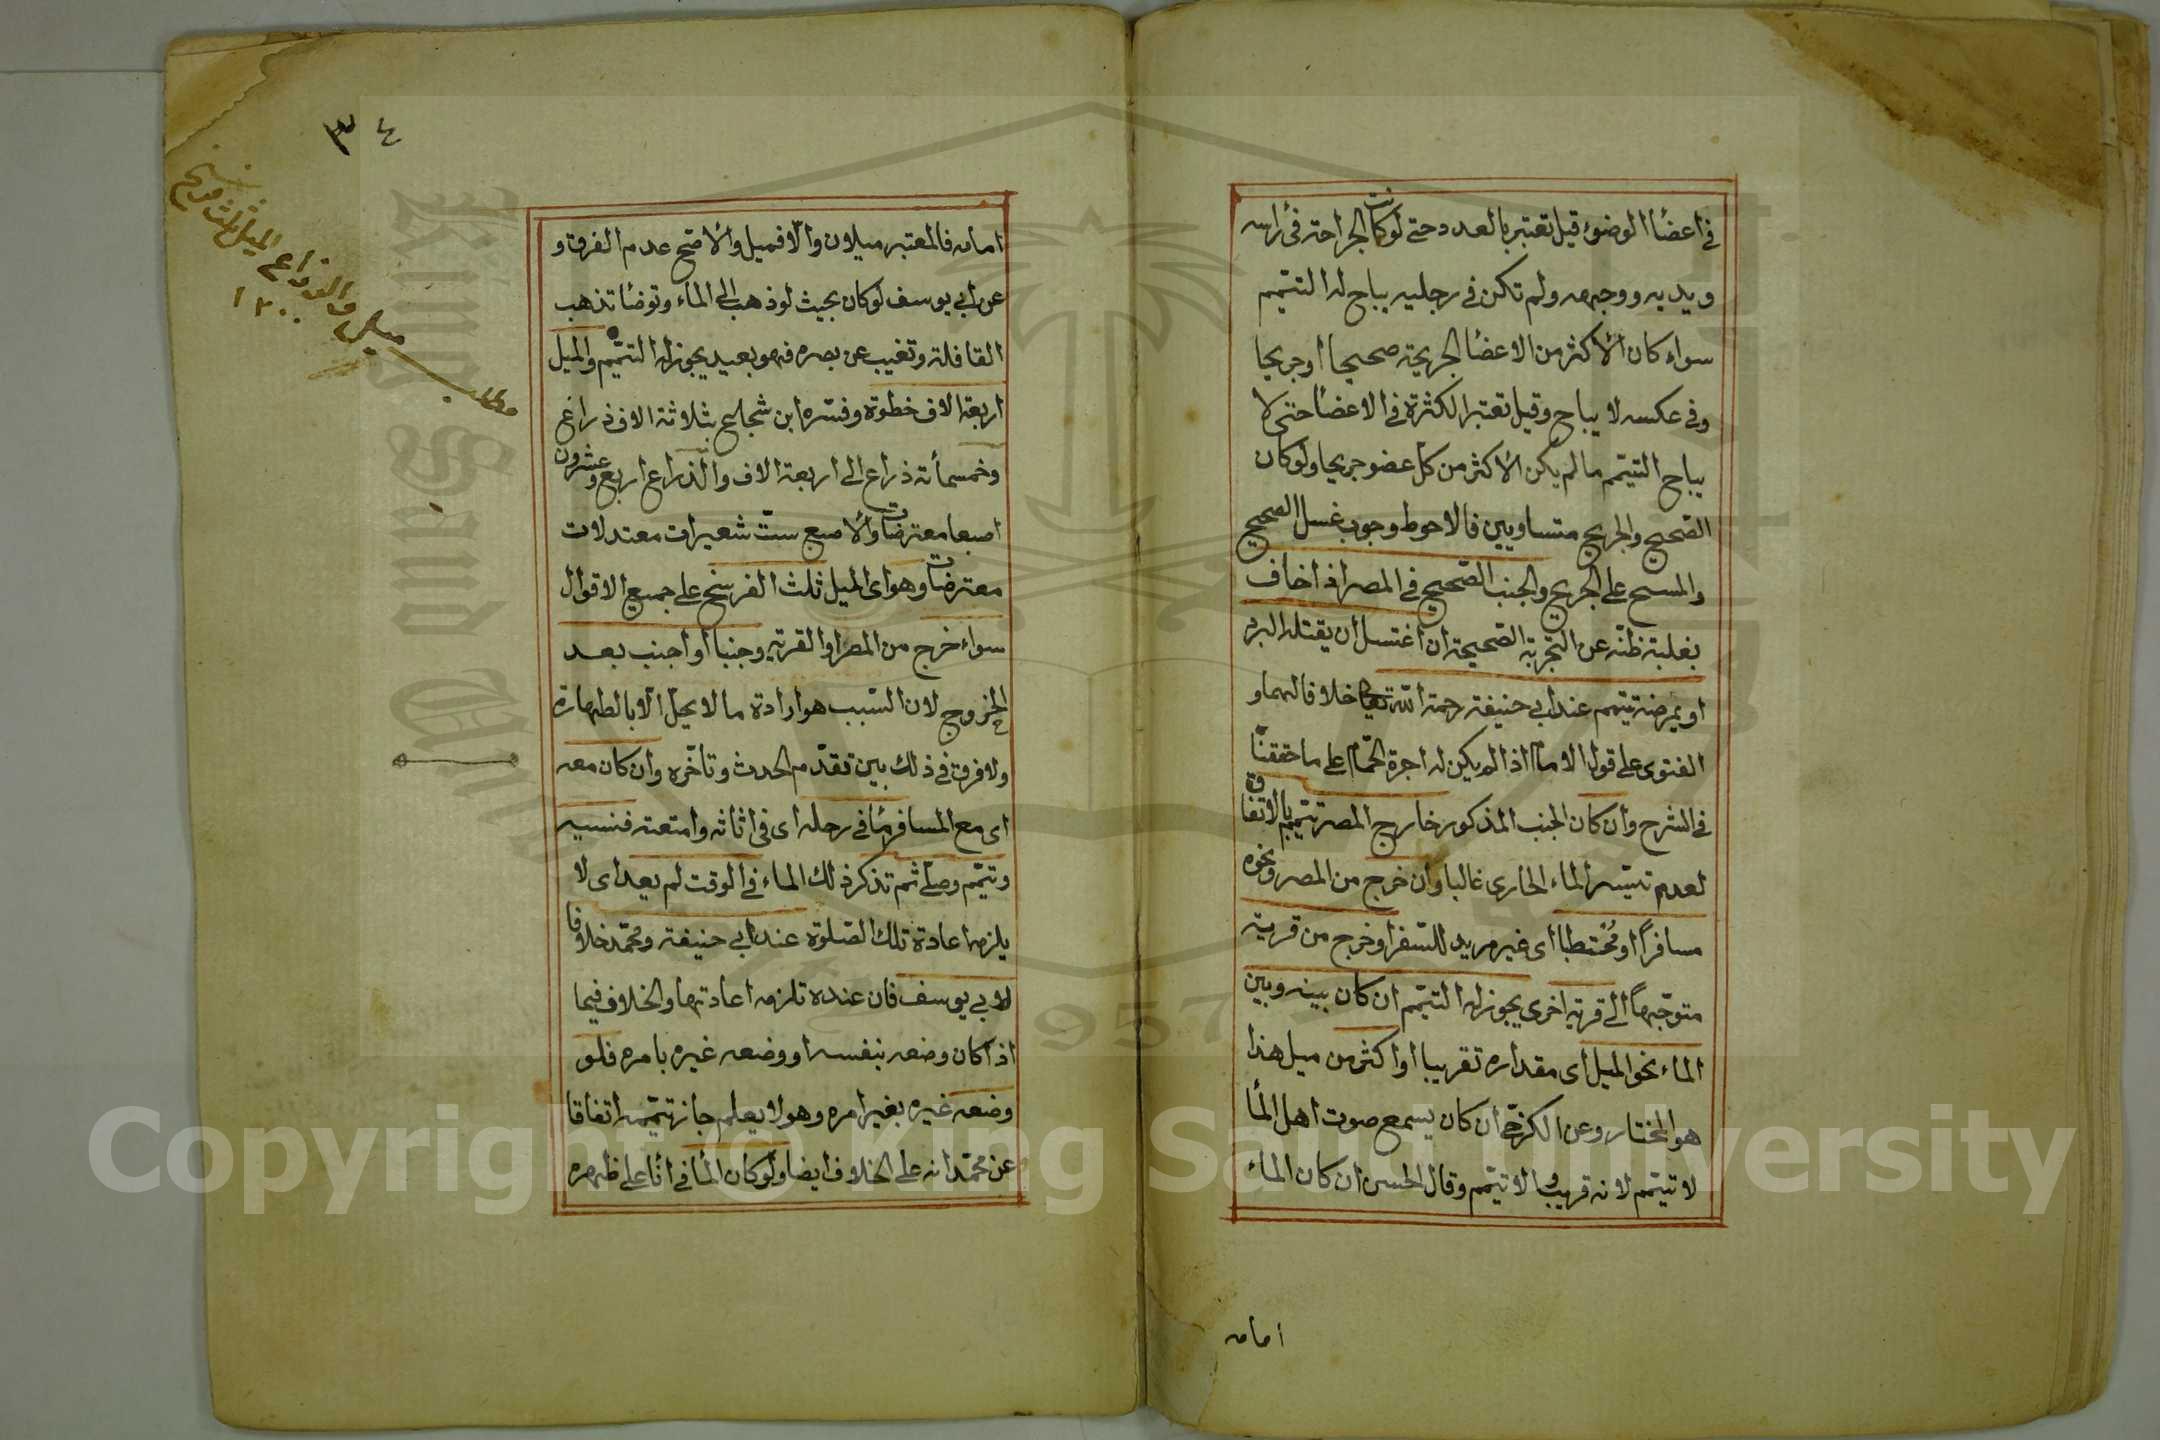 في اعضاء الوضوء قيل تعتبر بالعدد حتى لو كانت الجراحة في رأسه
ويديه ووجهه ولم تكن في رجليه يباح له التيمم
سواء كان الأكثر من الاعضاء الجريحة صحيحا او جريحا
وفي عكسه لا يباح وقيل تعتبر الكثرة في الاعضاء حتى لا
يباح التيمم ما لم يكن الأكثر من كل عضو جريحا ولو كان
الصحيح والجريح متساويين فالاحوط وجوب غسل الصحيح
والمسح على الجريح والجنب الصحيح في المصر اذا خاف
بغلبة ظنه عن التجربة الصحيحة ان اغتسل ان يقتله البرد
او يمرضه تيمم عند ابي حنيفة رحمة الله تعالى خلافا لهما و
الفتوى على قول الامام اذا لم يكن له اجرة الحمام على ما حققنا
في الشرح وان كان الجنب المذكور خارج المصر تيمم بالاتفاق
لعدم تيسر الماء الحار غالبا وان خرج من المصر ونحوه
مسافراً او محتطبا اى غير مريد للسفر او خرج من قرية
متوجهاً الى قرية اخرى يجوز له التيمم ان كان بينه وبين
الماء نحو الميل اى مقداره تقريبا او اكثر من ميل هذا
هو المختار وعن الكرخي ان كان يسمع صوت اهل الماء
لا تيمم لانه قريب والا تيمم وقال الحسن ان كان الماء
امامه
٣٤
امامه فالمعتبر ميلان والا فميل والاصح عدم الفرق و
عن ابي يوسف لو كان بحيث لو ذهب الى الماء وتوضأ تذهب
القافلة وتغيب عن بصره فهو بعيد يجوز له التيمم والميل
اربعة الاف خطوة وفسره ابن شجاع بثلاثة الاف ذراع
وخمسمأئة ذراع الى اربعة الاف والذراع اربع وعشرون
اصبعا معترضات والاصبع ست شعيرات معتدلات
معترضات وهو اى الميل ثلث الفرسخ على جميع الاقوال
سواء خرج من المصر او القرية وجنبا او اجنب بعد
الخروج لان السبب هو ارادة ما لا يحل الا بالطهارة
ولا فرق في ذلك بين تقدم الحدث وتأخره وان كان معه
اى مع المسافر ماء في رحله اى في اثاثه وامتعته فنسيه
وتيمم وصلى ثم تذكر ذلك الماء في الوقت لم يعد اى لا
يلزمه اعادة تلك الصلوة عند ابي حنيفة ومحمد خلافا
لابي يوسف فان عنده تلزمه اعادتها والخلاف فيما
اذا كان وضعه بنفسه او وضعه غيره بامره فلو
وضعه غيره بغير امره وهو لا يعلم جاز تيممه اتفاقا
عن محمد انه على الخلاف ايضا ولو كان الماء في اناء على ظهره
مطلب
ميل والذراع الميل ثلث فرسخ
١٢٠٠
King Saud University
1957
Copyright © King Saud University